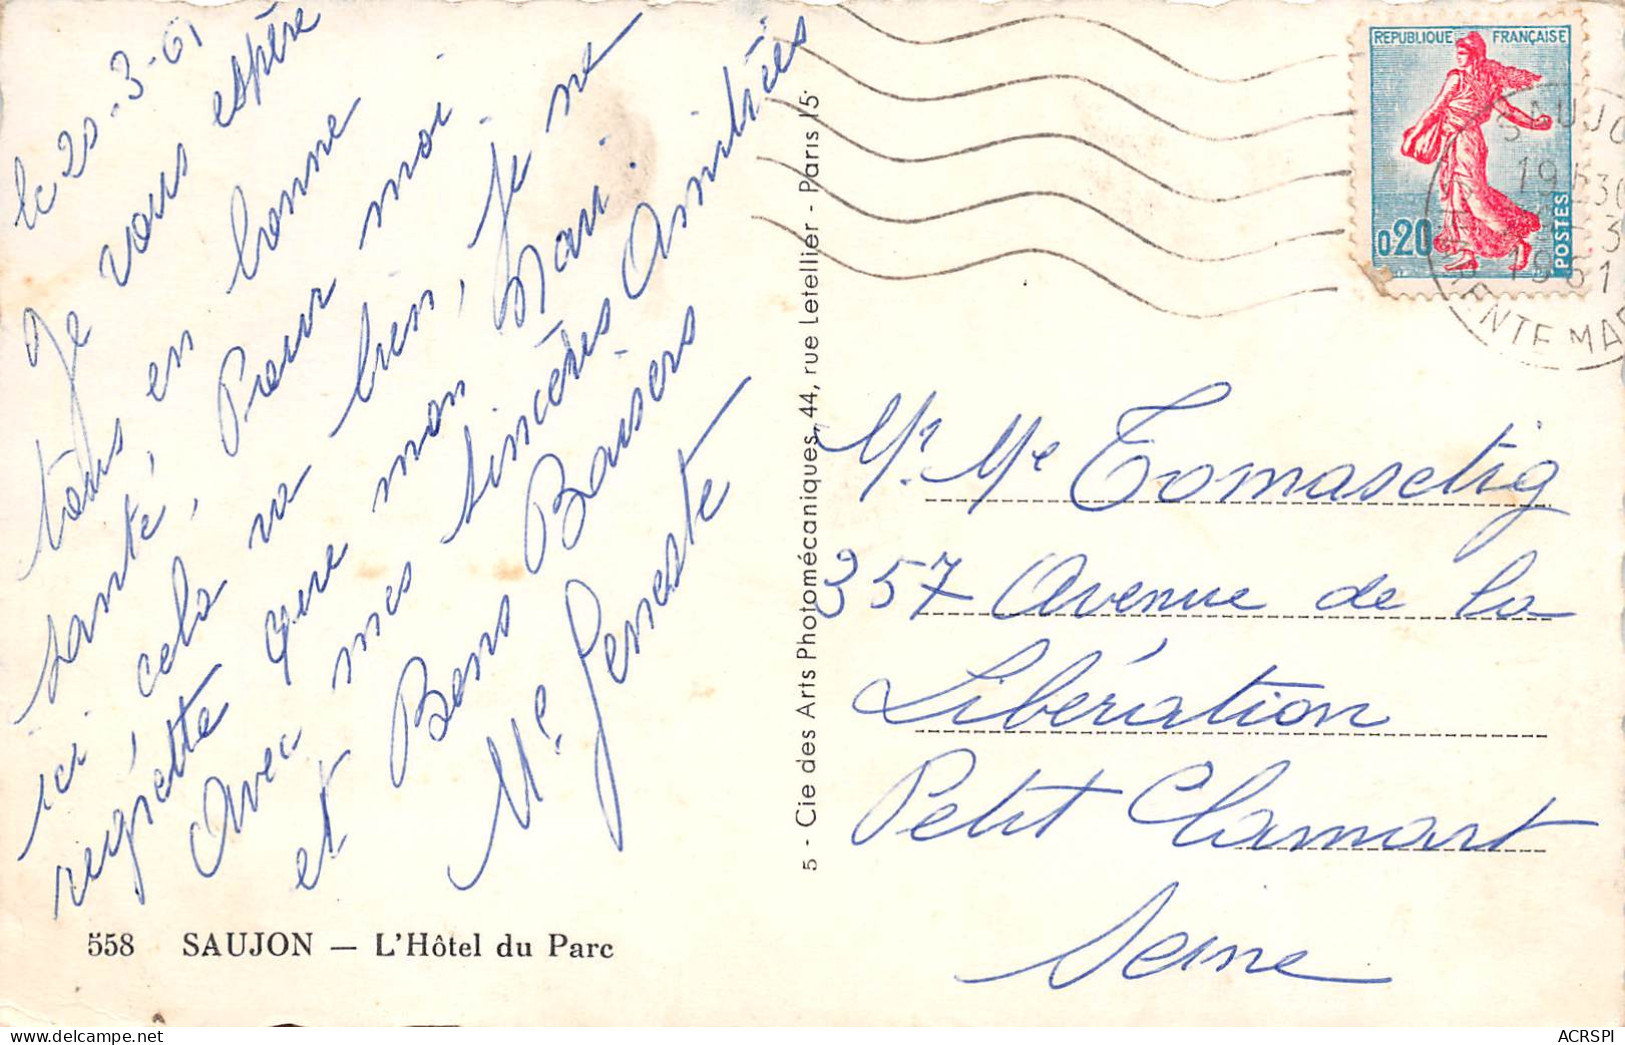 le 20-3-61
Je vous espère
tous en bonne
santé, Pour moi
ici, cela va bien, Je ne
regrette que mon Mari.
Avec mes sincères Amitiées
et Bons Baisers
Me Geneste
558 SAUJON — L'Hôtel du Parc
5 - Cie des Arts Photomécaniques, 44, rue Letellier - Paris 15
REPUBLIQUE FRANÇAISE
0,20
POSTES
SAUJO
19 H30
3
1961
ENTE MAR
Mr. Me Tomasetig
357 Avenue de la
Libération
Petit Clamart
Seine
ACRSPI